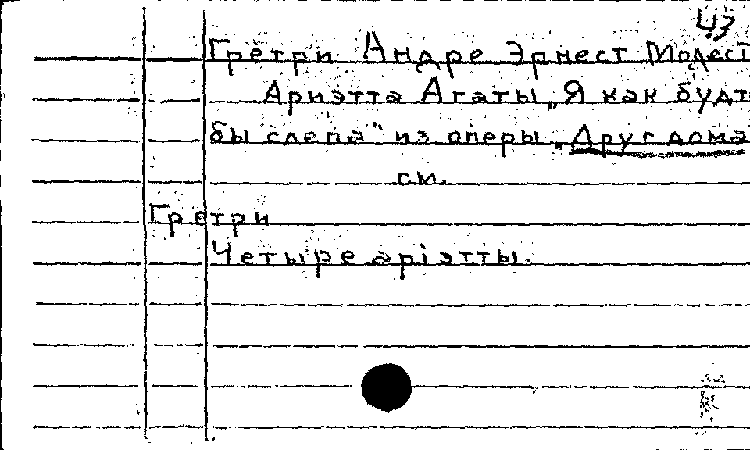 43
Гретри Андре Эрнест Модест
Ариэтта Агаты „Я как будт
бы слепа" из оперы „Друг дома
см.
Гретри
Четыре арiэтты.